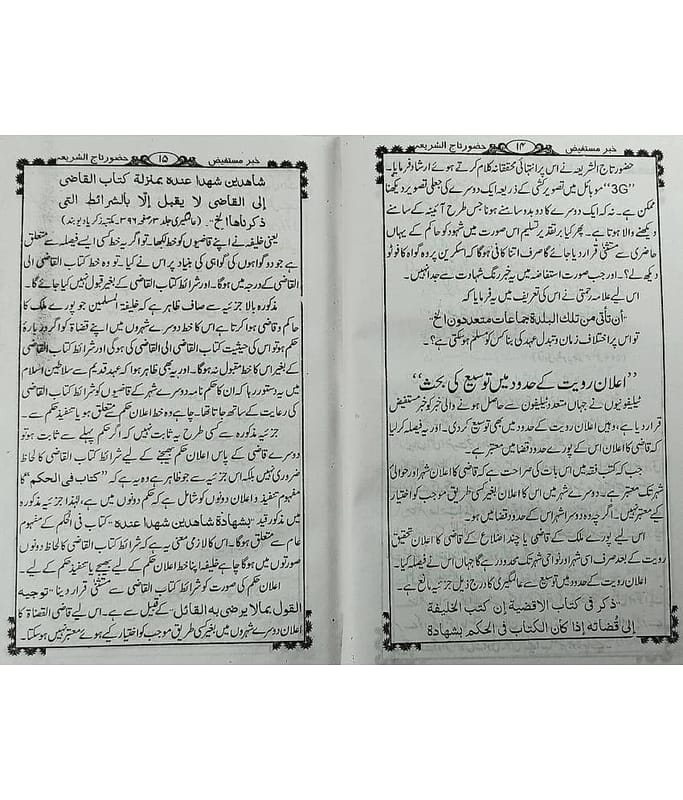 خبر مستفیض ۱۴ حضور تاج الشریعہ
حضور تاج الشریعہ نے اس پر انتہائی محققانہ کلام کرتے ہوئے ارشاد فرمایا۔
"3G" موبائل میں تصویر کشی کے ذریعہ ایک دوسرے کی جعلی تصویر دیکھنا
ممکن ہے۔ نہ کہ ایک دوسرے کا دو بدو سامنے ہونا جس طرح آئینہ کے سامنے
دیکھنے والا ہوتا ہے۔ پھر کیا بر تقدیر تسلیم اس صورت میں شہود کو حاکم کے یہاں
حاضری سے مستثنیٰ قرار دیا جائے گا صرف اتنا کافی ہوگا کہ اسکرین پر وہ گواہ کا فوٹو
دیکھ لے؟۔ اور جب صورت استفاضہ میں یہ خبر رنگ شہادت سے جدا نہیں۔
اس لیے علامہ رحمتی نے اس کی تعریف میں یہ فرمایا کہ
"أن تأتی من تلك البلدة جماعات متعددون الخ"
تو اس پر اختلاف زمان و تبدل عہد کی بنا کس کو مسلم ہو سکتی ہے؟۔
"اعلان رویت کے حدود میں توسیع کی بحث"
ٹیلیفونیوں نے جہاں متعدد ٹیلیفون سے حاصل ہونے والی خبر کو خبر مستفیض
قرار دیا ہے، وہیں اعلان رویت کے حدود میں بھی توسیع کر دی۔ اور یہ فیصلہ کر لیا
کہ قاضی کا اعلان اس کے پورے حدود قضا میں معتبر ہے۔
جب کہ کتب فقہ میں اس بات کی صراحت ہے کہ قاضی کا اعلان شہر اور حوالی
شہر تک معتبر ہے۔ دوسرے شہر میں اس کا اعلان بغیر کسی طریق موجب کو اختیار
کیے معتبر نہیں۔ اگرچہ وہ دوسرا شہر اس کے حدود قضا میں ہو۔
اس لیے پورے ملک کے قاضی یا چند اضلاع کے قاضی کا اعلان تحقیق
رویت کے بعد صرف اسی شہر اور نواحی شہر تک محدود رہے گا جہاں اس نے فیصلہ کیا۔
اعلان رویت کے حدود میں توسیع سے عالمگیری کا درج ذیل جزئیہ مانع ہے۔
ذکر فی کتاب الاقضیة إن کتب الخلیفة
إلی قضاته إذا کان الکتاب فی الحکم بشهادة
خبر مستفیض ۱۵ حضور تاج الشریعہ
شاهدین شهدا عنده بمنزلة کتاب القاضی
إلی القاضی لا یقبل إلّا بالشرائط التی
ذکرناها الخ"۔ (عالمگیری جلد ۳ صفحہ ۳۹۶، مکتبہ زکریا دیوبند)
یعنی خلیفہ نے اپنے قاضیوں کو خط لکھا۔ تو اگر یہ خط کسی ایسے فیصلہ سے متعلق
ہے جو دو گواہوں کی گواہی کی بنیاد پر اس نے کیا۔ تو وہ خط کتاب القاضی الی
القاضی کے درجہ میں ہوگا۔ اور شرائط کتاب القاضی کے بغیر قبول نہیں کیا جائے گا۔
مذکورہ بالا جزئیہ سے صاف ظاہر ہے کہ خلیفۃ المسلمین جو پورے ملک کا
حاکم و قاضی ہوا کرتا ہے اس کا خط دوسرے شہروں میں اپنے قضاۃ کو اگر دربارۂ
حکم ہو تو اس کی حیثیت کتاب القاضی الی القاضی کی ہوگی اور شرائط کتاب القاضی
کے بغیر اس کا خط مقبول نہ ہوگا۔ اور یہ بھی ظاہر ہوا کہ عہد قدیم سے سلاطین اسلام
میں یہ دستور رہا کہ ان کا حکم نامہ دوسرے شہر کے قاضیوں کو شرائط کتاب القاضی
کی رعایت کے ساتھ جاتا تھا۔ چاہے وہ خط اعلان حکم سے متعلق ہو یا تنفیذ حکم سے۔
جزئیہ مذکورہ سے کسی طرح یہ ثابت نہیں کہ اگر حکم پہلے سے ثابت ہو تو
دوسرے قاضی کے پاس اعلان حکم بھیجنے کے لیے شرائط کتاب القاضی کا لحاظ
ضروری نہیں بلکہ اس جزئیہ سے جو ظاہر ہے وہ یہ ہے کہ "کتاب فی الحکم" کا
مفہوم تنفیذ و اعلان دونوں کو شامل ہے کہ حکم دونوں میں ہے، لہٰذا جزئیہ مذکورہ
میں مذکور قید "بشهادة شاهدین شهدا عنده" کتاب فی الحکم کے مفہوم
عام سے متعلق ہوگا۔ اس کا لازمی معنی یہ ہے کہ شرائط کتاب القاضی کا لحاظ دونوں
صورتوں میں ہوگا چاہے خلیفہ اپنا خط اعلان حکم کے لیے بھیجے یا تنفیذ حکم کے لیے۔
اعلان حکم کی صورت کو شرائط کتاب القاضی سے مستثنیٰ قرار دینا "توجیه
القول بمالا یرضی به القائل" کے قبیل سے ہے۔ اس لیے قاضی القضاۃ کا
اعلان دوسرے شہروں میں بغیر کسی طریق موجب کو اختیار کیے ہوئے معتبر نہیں ہو سکتا۔